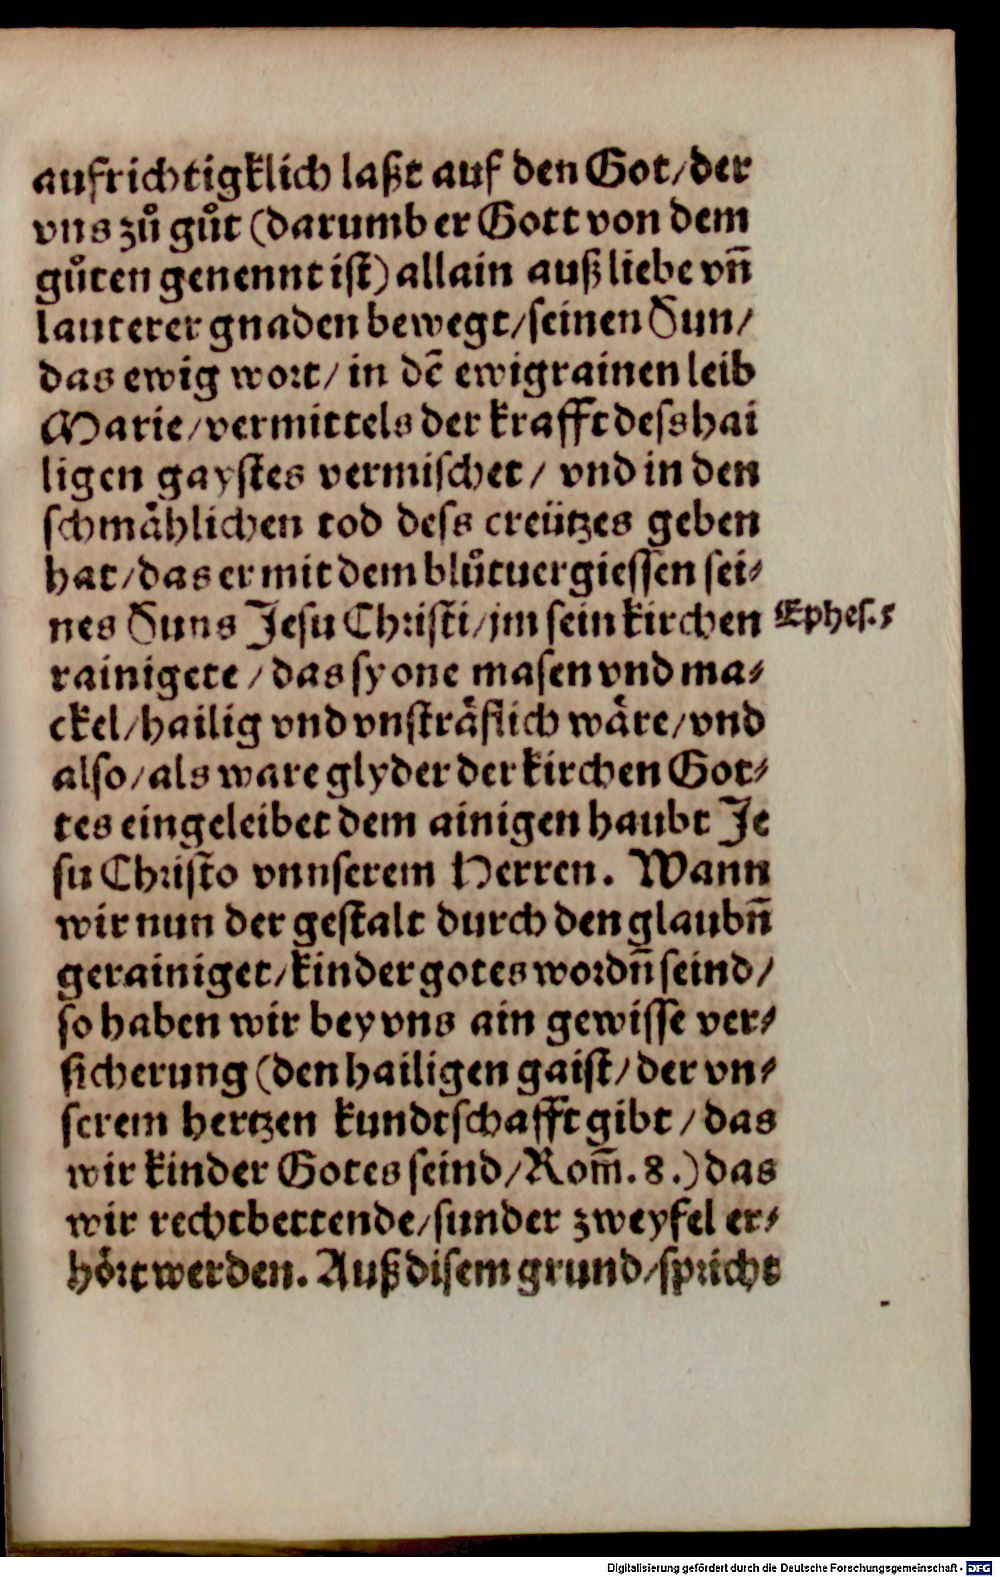 aufrichtigklich laßt auf den Got/der
vns zů gůt (darumb er Gott von dem
gůten genennt ist) allain auß liebe vn̄
lauterer gnaden bewegt/seinen Sun/
das ewig wort/ in dē ewigrainen leib
Marie/vermittels der krafft dess hai
ligen gaystes vermischet/ vnd in den
schmählichen tod dess creützes geben
hat/das er mit dem blůtuergiessen sei⸗
nes Suns Jesu Christi/jm sein kirchen
Ephes.5
rainigete/das sy one masen vnd ma⸗
ckel/hailig vnd vnsträflich wäre/vnd
also/als ware glyder der kirchen Got⸗
tes eingeleibet dem ainigen haubt Je
su Christo vnnserem Herren. Wann
wir nun der gestalt durch den glaubn̄
gerainiget/kinder gotes wordn̄ seind/
so haben wir bey vns ain gewisse ver⸗
sicherung (den hailigen gaist/der vn⸗
serem hertzen kundtschafft gibt/das
wir kinder Gotes seind/Rom̄.8.) das
wir recht bettende/sunder zweyfel er⸗
hört werden. Auß disem grund/spricht
Digitalisierung gefördert durch die Deutsche Forschungsgemeinschaft - DFG